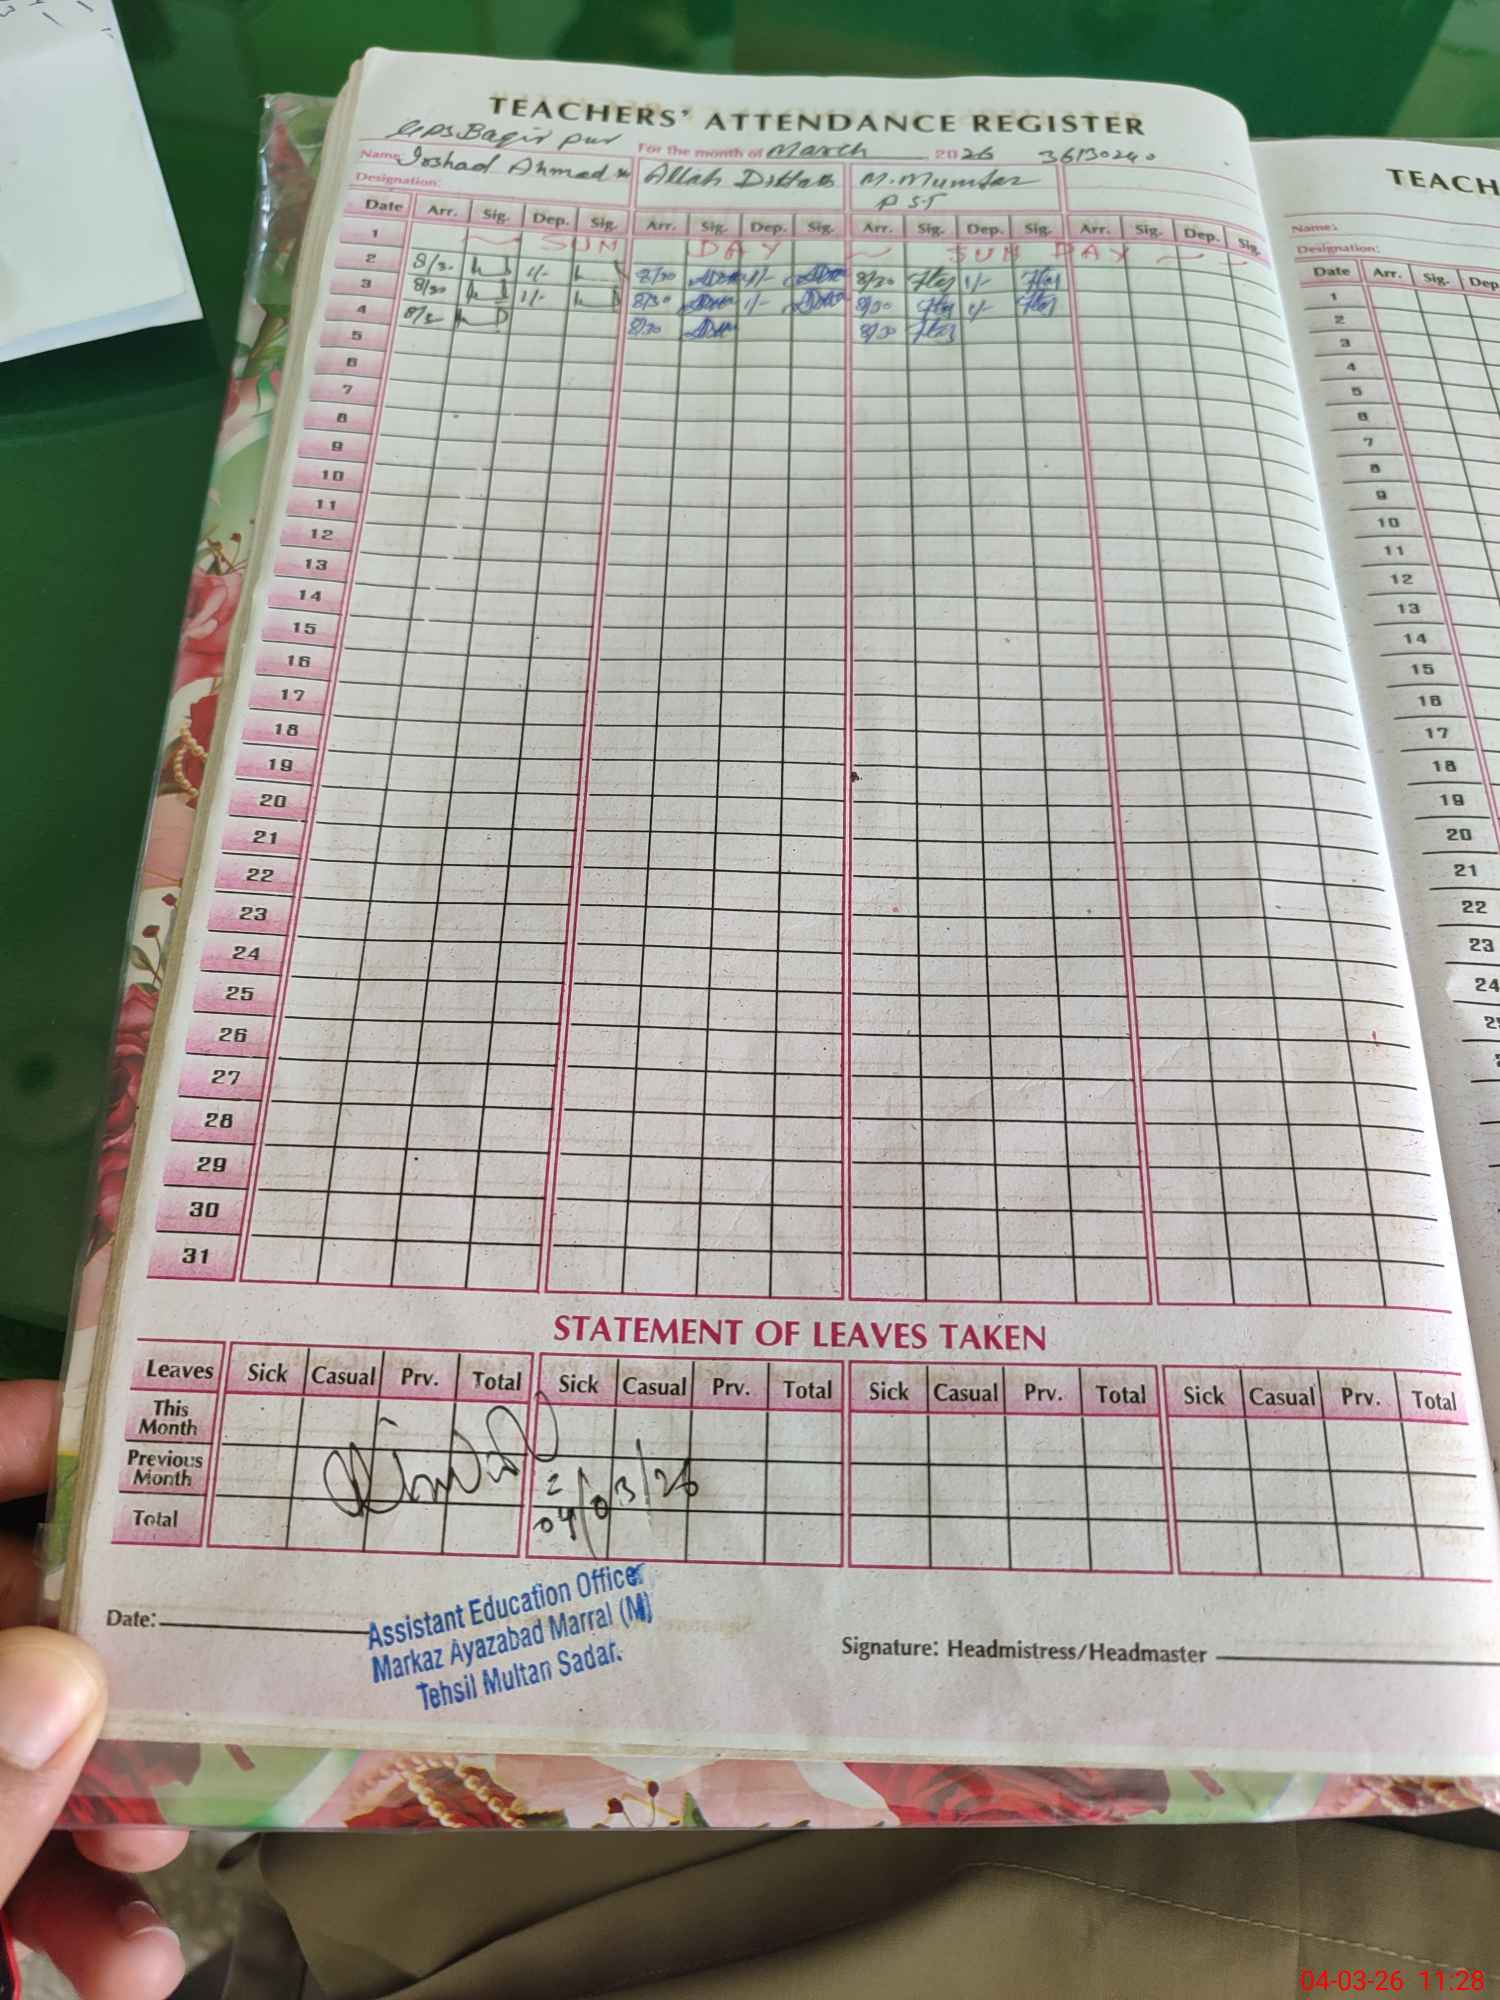 TEACHERS' ATTENDANCE REGISTER
GPS Baqir pur
For the month of March 2026 36130240
Name: Irshad Ahmad Allah Ditta M. Mumtaz
Designation: PST
Date Arr. Sig. Dep. Sig. Arr. Sig. Dep. Sig. Arr. Sig. Dep. Sig. Arr. Sig. Dep. Sig.
1 SUN DAY SUN DAY
2 8/30 1/- 8/30 1/- 8/30 1/-
3 8/30 1/- 8/30 1/- 8/30 1/-
4 8/30 8/30 8/30
5
6
7
8
9
10
11
12
13
14
15
16
17
18
19
20
21
22
23
24
25
26
27
28
29
30
31
STATEMENT OF LEAVES TAKEN
Leaves Sick Casual Prv. Total Sick Casual Prv. Total Sick Casual Prv. Total Sick Casual Prv. Total
This Month
Previous Month
Total
04/03/26
Date:
Assistant Education Officer
Markaz Ayazabad Marral (M)
Tehsil Multan Sadar.
Signature: Headmistress/Headmaster
TEACH
Name:
Designation:
Date Arr. Sig. Dep
1
2
3
4
5
6
7
8
9
10
11
12
13
14
15
16
17
18
19
20
21
22
23
24
04-03-26 11:28